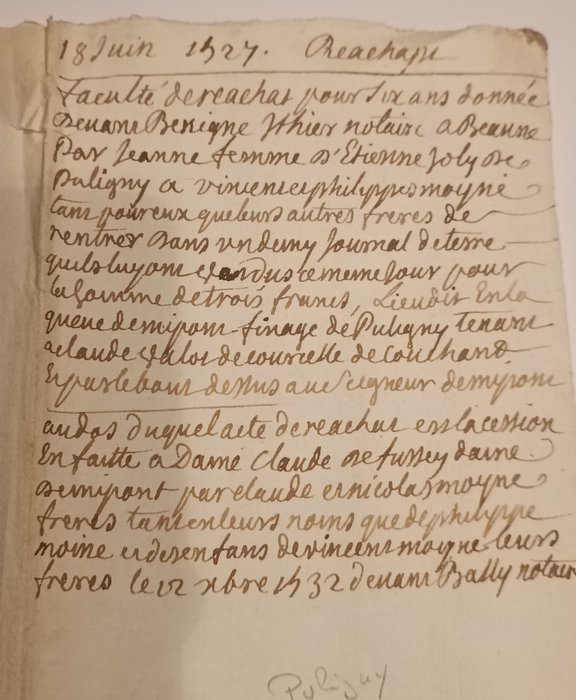 18 Juin 1527. Reachapt
faculté de reachat pour six ans donnée
Devant Benigne Ythier notaire a Beaune
Par Jeanne femme D'Etienne Joly De
Puligny a vincent et philyppes moyne
tant pour eux que leurs autres freres de
rentrer Dans un demy Journal de terre
quils luy ont vendus ce meme Jour pour
la somme de trois francs, Lieudit En la
queue de mipont finage de Puligny tenant
a claude valot de courcelle de couchand
Et par le bout dessus au seigneur de mypont
au dos duquel acte de reachat est la cession
En faitte a Dame Claude de fussey dame
De mipont par claude et nicolas moyne
freres tant en leurs noms que de philyppe
moine et des enfans de vincent moyne leurs
freres le 12 xbre 1532 devant Bally notaire
Puligny